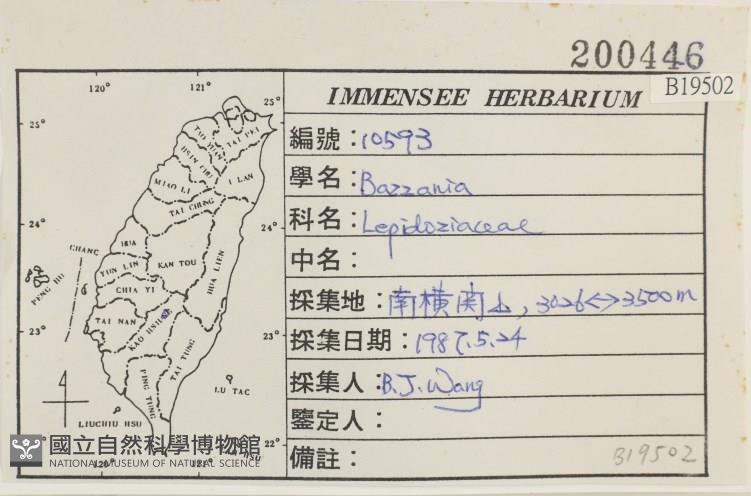 200446
B19502
IMMENSEE HERBARIUM
編號：10593
學名：Bazzania
科名：Lepidoziaceae
中名：
採集地：南横関山, 3026↔3500m
採集日期：1987.5.24
採集人：B.J. Wang
鑒定人：
備註：
B19502
120°
121°
25°
25°
TAI PEI
HSIN CHU
I LAN
MIAO LI
TAI CHUNG
24°
24°
CHANG
HUA
YUN LIN
NAN TOU
HUA LIEN
PENG HU
CHIA YI
TAI NAN
KAO HSIUNG
23°
23°
TAI TUNG
PING TUNG
LU TAO
LIUCHIU HSU
22°
120°
121°
HSU
國立自然科學博物館
NATIONAL MUSEUM OF NATURAL SCIENCE